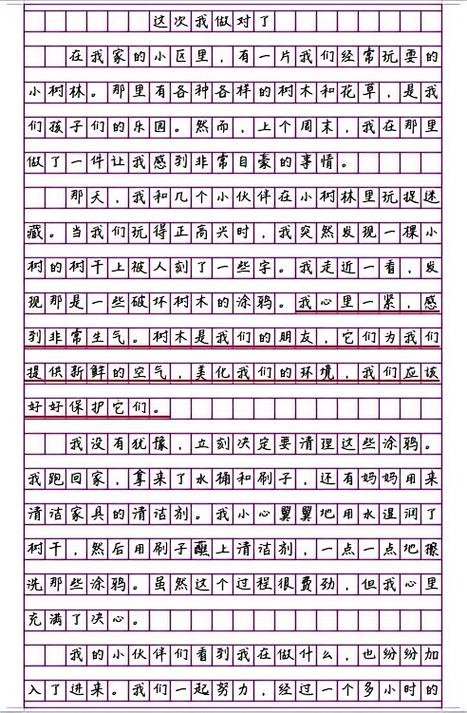 这次我做对了
在我家的小区里，有一片我们经常玩耍的
小树林。那里有各种各样的树木和花草，是我
们孩子们的乐园。然而，上个周末，我在那里
做了一件让我感到非常自豪的事情。
那天，我和几个小伙伴在小树林里玩捉迷
藏。当我们玩得正高兴时，我突然发现一棵小
树的树干上被人刻了一些字。我走近一看，发
现那是一些破坏树木的涂鸦。我心里一紧，感
到非常生气。树木是我们的朋友，它们为我们
提供新鲜的空气，美化我们的环境，我们应该
好好保护它们。
我没有犹豫，立刻决定要清理这些涂鸦。
我跑回家，拿来了水桶和刷子，还有妈妈用来
清洁家具的清洁剂。我小心翼翼地用水湿润了
树干，然后用刷子蘸上清洁剂，一点一点地擦
洗那些涂鸦。虽然这个过程很费劲，但我心里
充满了决心。
我的小伙伴们看到我在做什么，也纷纷加
入了进来。我们一起努力，经过一个多小时的